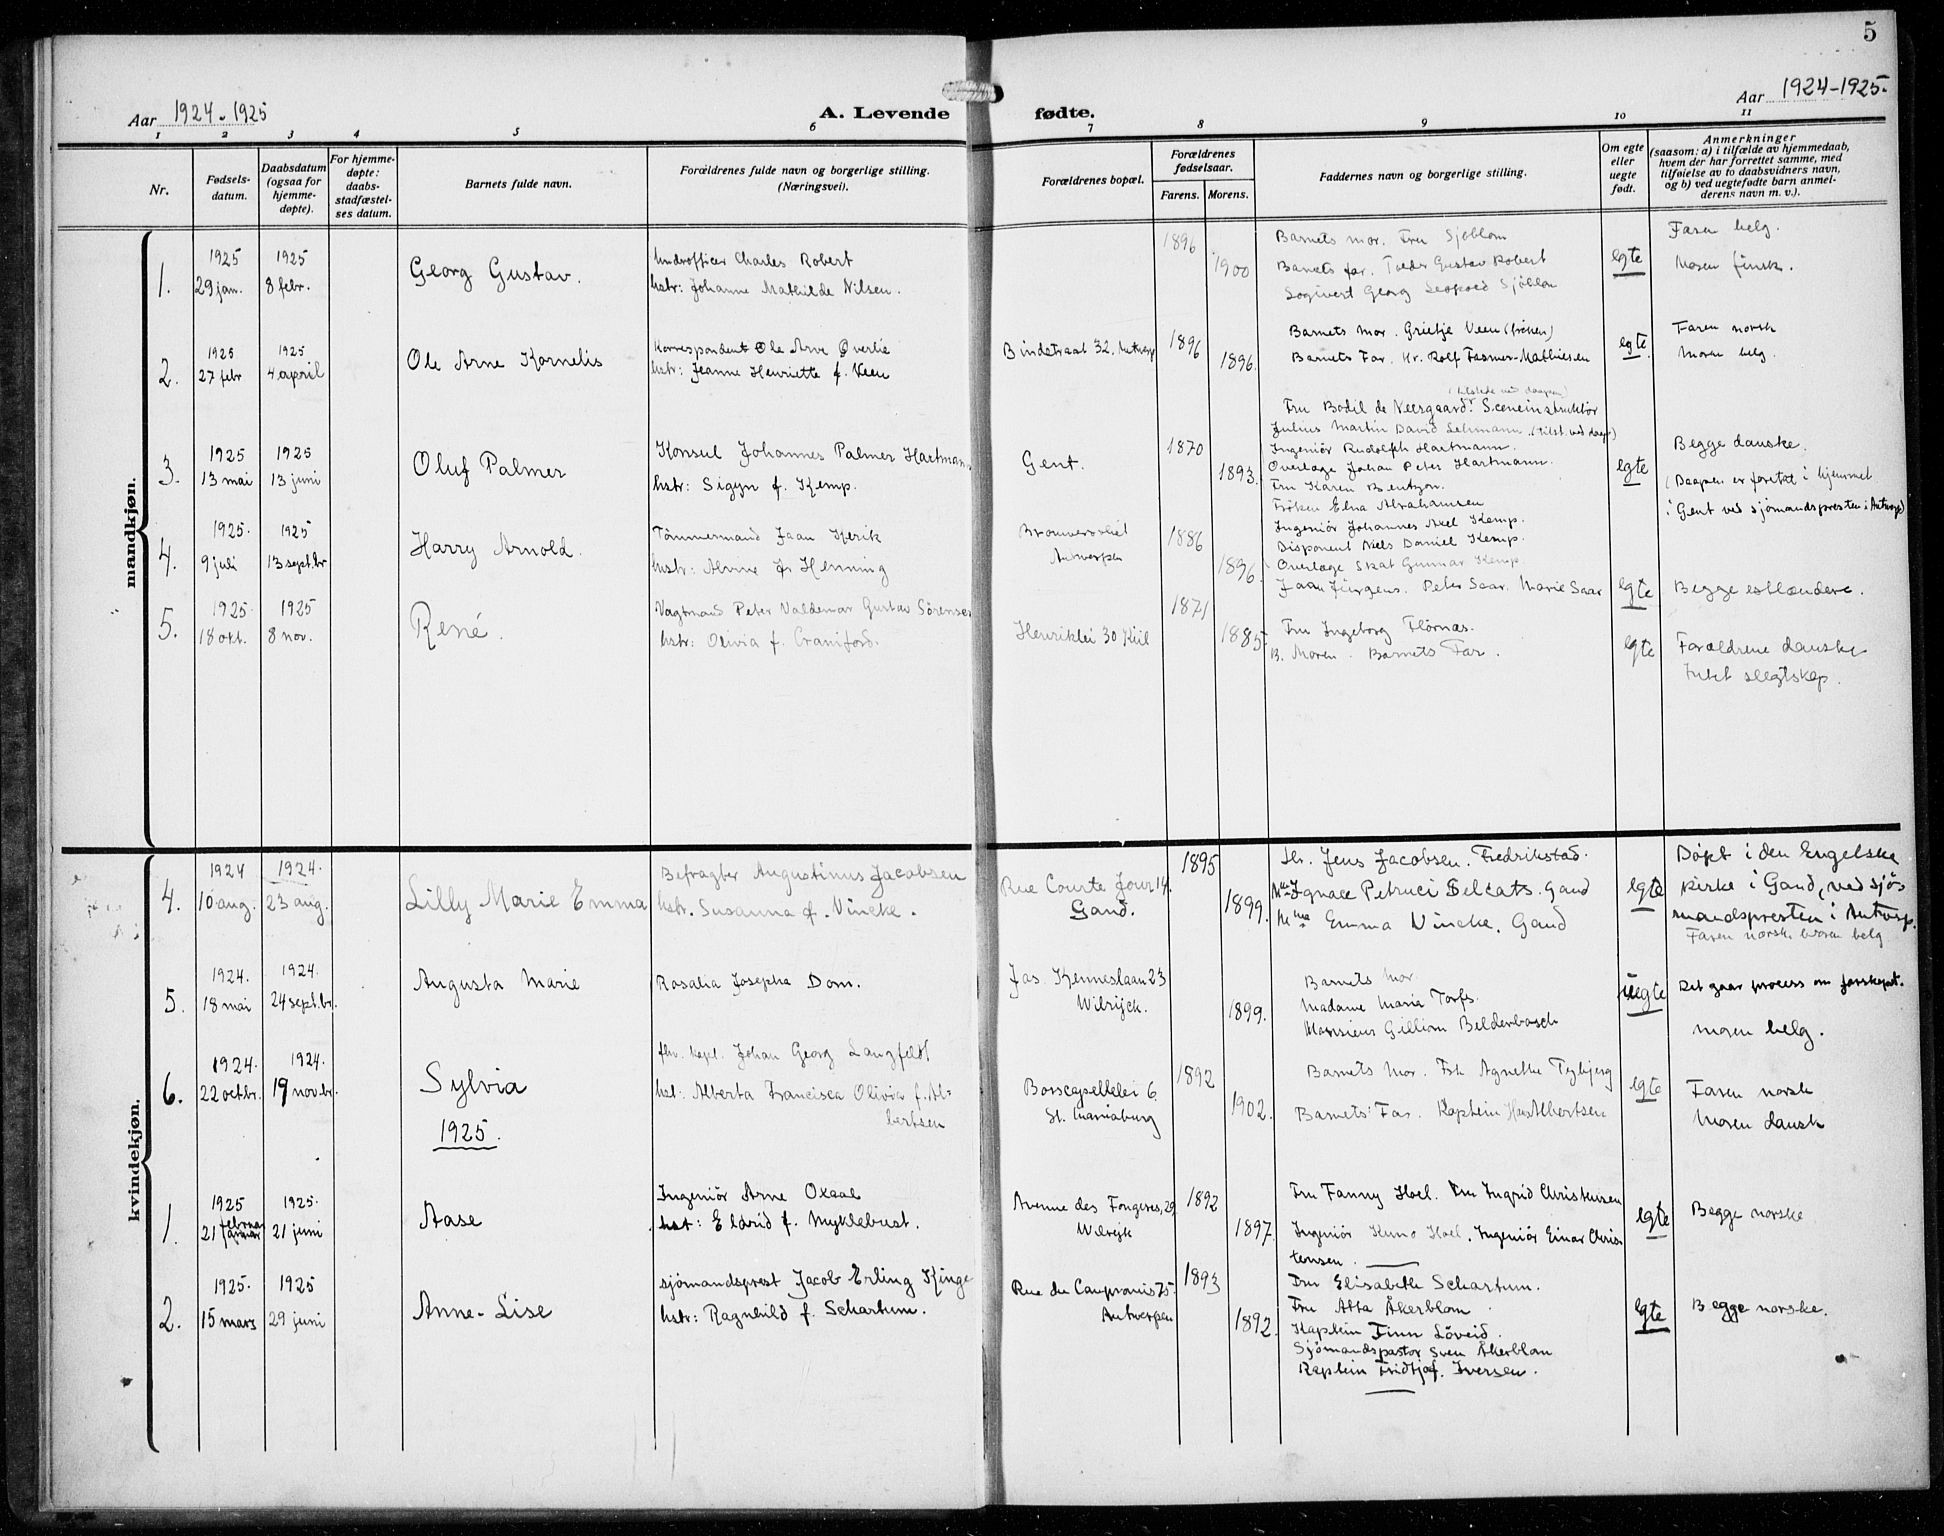 5
Aar 1924-1925
A. Levende fødte.
Aar 1924-1925.
1 2 3 4 5 6 7 8 9 10 11
Nr.
Fødsels-
datum.
Daabsdatum
(ogsaa for
hjemme-
døpte).
For hjemme-
døpte:
daabs-
stadfæstel-
ses datum.
Barnets fulde navn.
Forældrenes fulde navn og borgerlige stilling.
(Næringsvei).
Forældrenes bopæl.
Forældrenes
fødselsaar.
Farens. Morens.
Faddernes navn og borgerlige stilling.
Om egte
eller
uegte
født.
Anmerkninger
(saasom: a) i tilfælde av hjemmedaab,
hvem der har forrettet samme, med
tilføielse av to daabsvidners navn,
og b) ved uegtefødte barn anmel-
derens navn m. v.).
mandkjøn.
1.
1925
29 jan.
1925
8 febr.
Georg Gustav.
Underofficer Charles Robert
hstr: Johanne Mathilde Nilsen.
1896
1900
Barnets mor. Fru Sjöblom
Barnets far. Gustav Robert
Georg Leopold Sjöblom
egte
Faren belg.
Moren finsk.
2.
1925
27 febr
1925
4 april
Ole Arne Kornelis
Korrespondent Ole Arne Överlie
hstr: Jeanne Henriette f. Veen
Bindstraat 32. Antwerp
1896
1896.
Barnets mor. Grietje Veen (fröken)
Barnets Far. Hr. Rolf Fasmer-Mathiesen
egte.
Faren norsk
Moren belg.
3.
1925
13 mai
1925
13 juni
Oluf Palmer
Konsul Johannes Palmer Hartmann
hstr: Sigyn f. Kemp.
Gent.
1870
1893.
Fru Bodil de Neergaard. Sceneinstruktör
Julius Martin David Lehmann. (tilst. ved daap)
Ingeniör Rudolph Hartmann.
Overlæge Johan Peter Hartmann.
Fru Karen Bentzon.
Fröken Elna Abrahamsen
Ingeniör Johannes Axel Kemp.
Disponent Niels Daniel Kemp.
Overlæge Skat Gunnar Kemp
egte
Begge danske.
(Daapen er foretat i hjemmet
i Gent ved sjömandspresten i Antwerp)
4.
1925.
9 juli
1925
13 sept.br
Harry Arnold.
Tömmermand Jaan Kjerik
hstr: Alvine f. Henning
Antwerpen
1886
1896.
Jaan Jürgens. Peter Saar. Marie Saar
egte
Begge estlændere.
5.
1925.
18 okt.
1925
8 nov.
René.
Vagtmand Peter Valdemar Gustav Sörensen
hstr: Olivia f. Craniford.
Henriklei 30 Kiil
1871
1885.
Fru Ingeborg Flörnæs.
B. Moren. Barnets Far.
egte
Forældrene danske
Intet slegtskap.
kvindekjøn.
4.
1924
10 aug.
1924.
23 aug.
Lilly Marie Emma
Befragter Augustinus Jacobsen
hstr. Susanna f. Vincke.
Rue Courte Jour 14.
Gand.
1895
1899.
Hr. Jens Jacobsen. Fredrikstad.
Ignace Petruci Delcats. Gand
Mme Emma Vincke. Gand
egte
Döpt i den Engelske
Kirke i Gand, ved sjö-
mandspresten i Antwerp.
Faren norsk Moren belg
5.
1924.
18 mai
1924.
24 sept.br.
Augusta Marie
Rosalia Josepha Dom.
Jos. Kenneslaan 23
Wilrijck.
1899.
Barnets mor
Madame Maria Torfs.
Monsieur Gilliom Belderbosch
uegte
Det gaar process om farskapet.
Moren belg.
6.
1924.
22 octbr.
1924.
19 nov.br.
Sylvia
Johan Georg Langfeldt
hst: Alberta Francisca Olivia f. Al-
bertsen
1925.
Bosscapellelei 6
St. Mariaburg
1892
1902.
Barnets mor. Frk Agnethe Tybjerg
Barnets Far. Kaptein Hans Albertsen
egte
Faren norsk
Moren dansk
1.
1925
21 februar
1925.
21 juni
Aase
Ingeniör Arne Oxaal
hst: Eldrid f. Myklebust.
Avenue des Fougeres, 29
Wilrijk
1892
1897.
Fru Fanny Hoel. Fru Ingrid Christensen
Ingeniör Kuno Hoel. Ingeniör Einar Chris-
tensen.
egte
Begge norske
2.
1925.
15 mars
1925
29 juni
Anne-Lise
sjömandsprest Jacob Erling Kinge
hstr: Ragnhild f. Schartum.
Rue du Compromis 75.
Antwerpen
1893
1892.
Fru Elisabeth Schartum.
Fru Atta Åkerblom
Kaptein Finn Löveid.
Sjömandspastor Sven Åkerblom
Kaptein Fridtjof. Iversen.
egte
Begge norske.